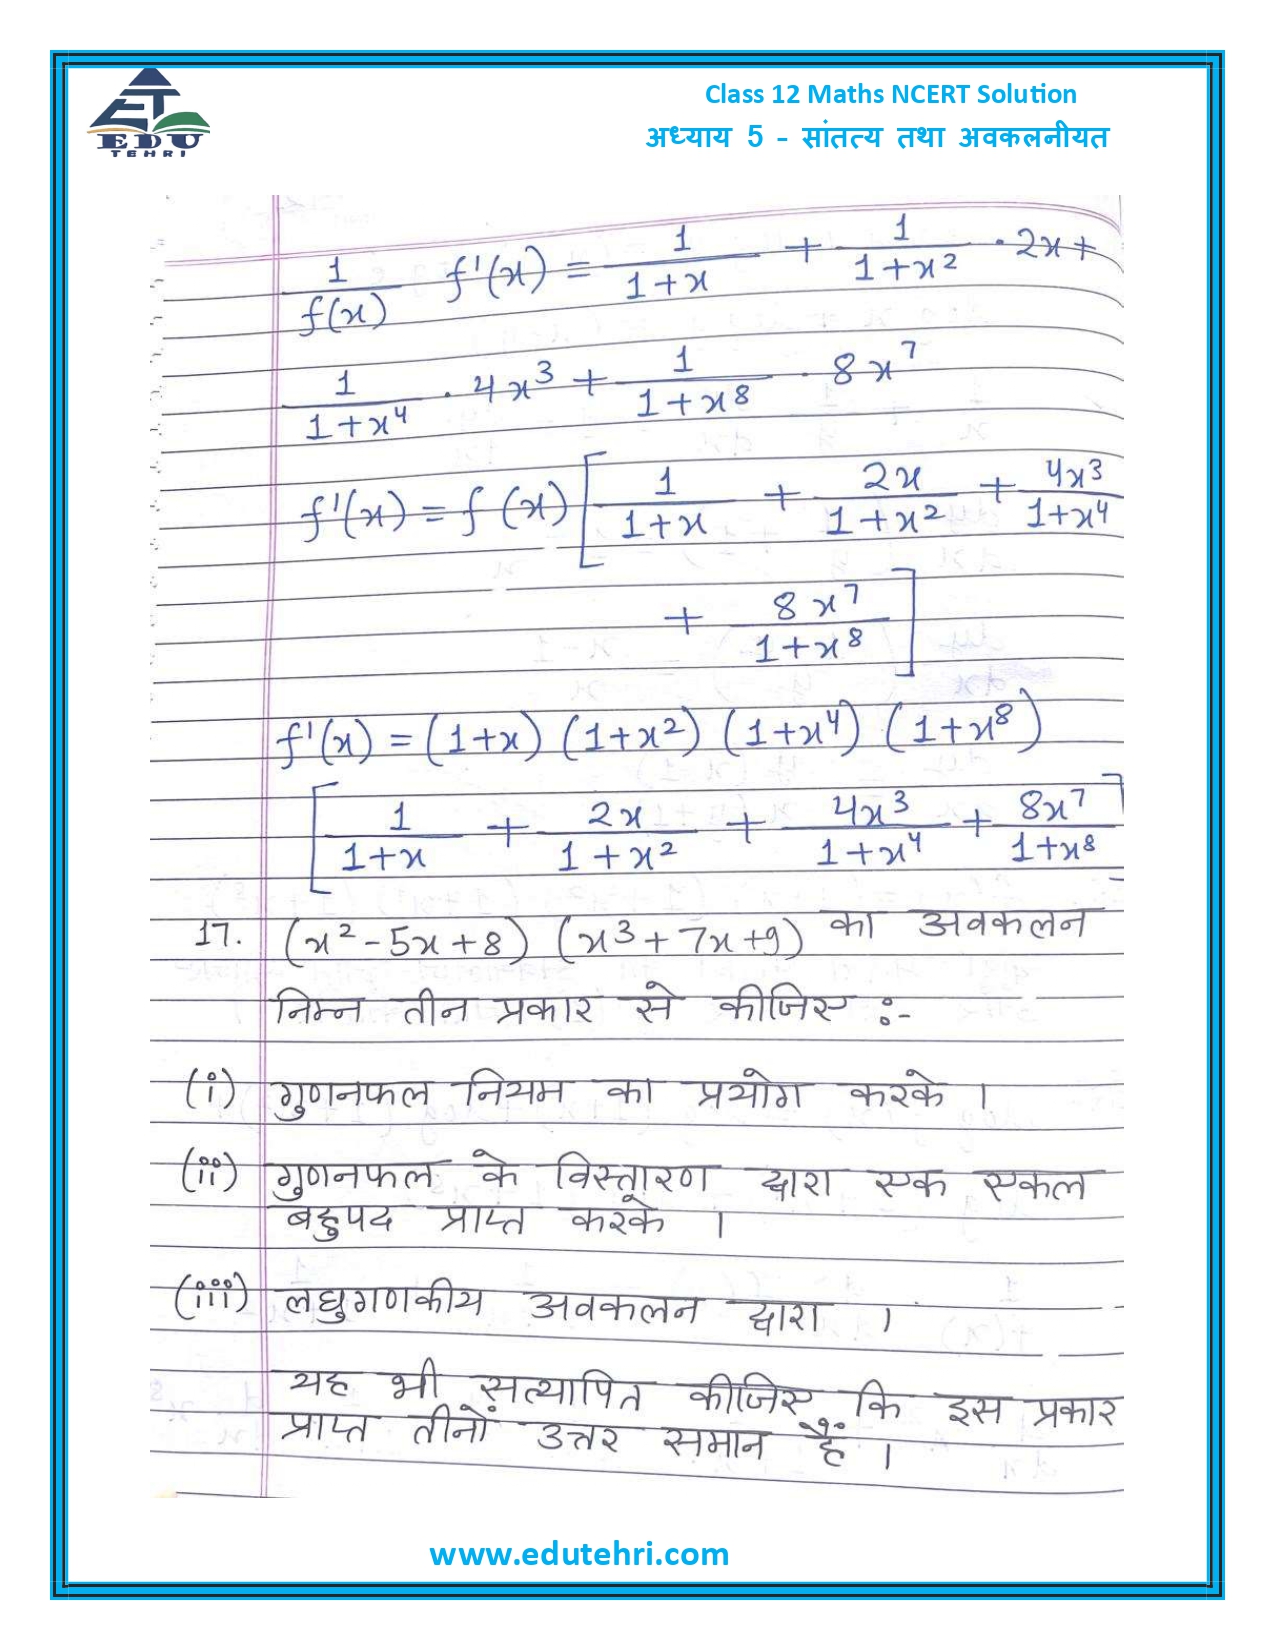 EDU
TEHRI
Class 12 Maths NCERT Solution
अध्याय 5 - सांतत्य तथा अवकलनीयत
1/f(x) f'(x) = 1/(1+x) + 1/(1+x²) · 2x +
1/(1+x⁴) · 4x³ + 1/(1+x⁸) · 8x⁷
f'(x) = f(x) [ 1/(1+x) + 2x/(1+x²) + 4x³/(1+x⁴)
+ 8x⁷/(1+x⁸) ]
f'(x) = (1+x) (1+x²) (1+x⁴) (1+x⁸)
[ 1/(1+x) + 2x/(1+x²) + 4x³/(1+x⁴) + 8x⁷/(1+x⁸) ]
17. (x² - 5x + 8) (x³ + 7x + 9) का अवकलन
निम्न तीन प्रकार से कीजिए :-
(i) गुणनफल नियम का प्रयोग करके ।
(ii) गुणनफल के विस्तारण द्वारा एक एकल
बहुपद प्राप्त करके ।
(iii) लघुगणकीय अवकलन द्वारा ।
यह भी सत्यापित कीजिए कि इस प्रकार
प्राप्त तीनों उत्तर समान हैं ।
www.edutehri.com